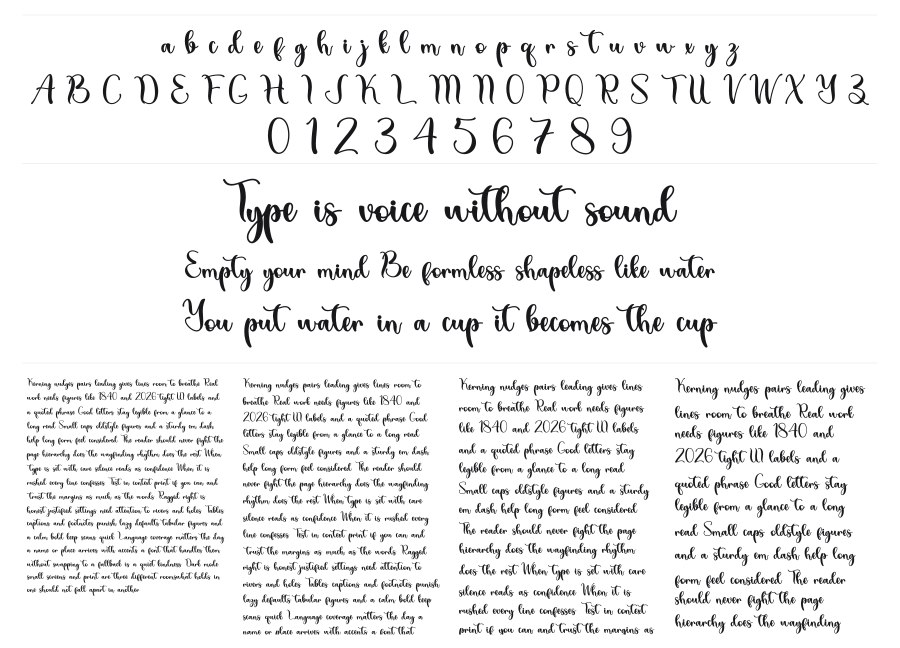 a b c d e f g h i j k l m n o p q r s t u v w x y z
A B C D E F G H I J K L M N O P Q R S T U V W X Y Z
0 1 2 3 4 5 6 7 8 9
Type is voice without sound
Empty your mind Be formless shapeless like water
You put water in a cup it becomes the cup
Kerning nudges pairs leading gives lines room to breathe Real
work needs figures like 1840 and 2026 tight UI labels and
a quoted phrase Good letters stay legible from a glance to a
long read Small caps oldstyle figures and a sturdy em dash
help long form feel considered The reader should never fight the
page hierarchy does the wayfinding rhythm does the rest When
type is set with care silence reads as confidence When it is
rushed every line confesses Test in context print if you can and
trust the margins as much as the words Ragged right is
honest justified settings need attention to rivers and holes Tables
captions and footnotes punish lazy defaults tabular figures and
a calm bold keep scans quick Language coverage matters the day
a name or place arrives with accents a font that handles them
without swapping to a fallback is a quiet kindness Dark mode
small screens and print are three different rooms what holds in
one should not fall apart in another
Kerning nudges pairs leading gives lines room to
breathe Real work needs figures like 1840 and
2026 tight UI labels and a quoted phrase Good
letters stay legible from a glance to a long read
Small caps oldstyle figures and a sturdy em dash
help long form feel considered The reader should
never fight the page hierarchy does the wayfinding
rhythm does the rest When type is set with care
silence reads as confidence When it is rushed every
line confesses Test in context print if you can and
trust the margins as much as the words Ragged
right is honest justified settings need attention to
rivers and holes Tables captions and footnotes punish
lazy defaults tabular figures and a calm bold keep
scans quick Language coverage matters the day a
name or place arrives with accents a font that
Kerning nudges pairs leading gives lines
room to breathe Real work needs figures
like 1840 and 2026 tight UI labels
and a quoted phrase Good letters stay
legible from a glance to a long read
Small caps oldstyle figures and a sturdy
em dash help long form feel considered
The reader should never fight the page
hierarchy does the wayfinding rhythm
does the rest When type is set with care
silence reads as confidence When it is
rushed every line confesses Test in context
print if you can and trust the margins as
Kerning nudges pairs leading gives
lines room to breathe Real work
needs figures like 1840 and
2026 tight UI labels and a
quoted phrase Good letters stay
legible from a glance to a long
read Small caps oldstyle figures
and a sturdy em dash help long
form feel considered The reader
should never fight the page
hierarchy does the wayfinding